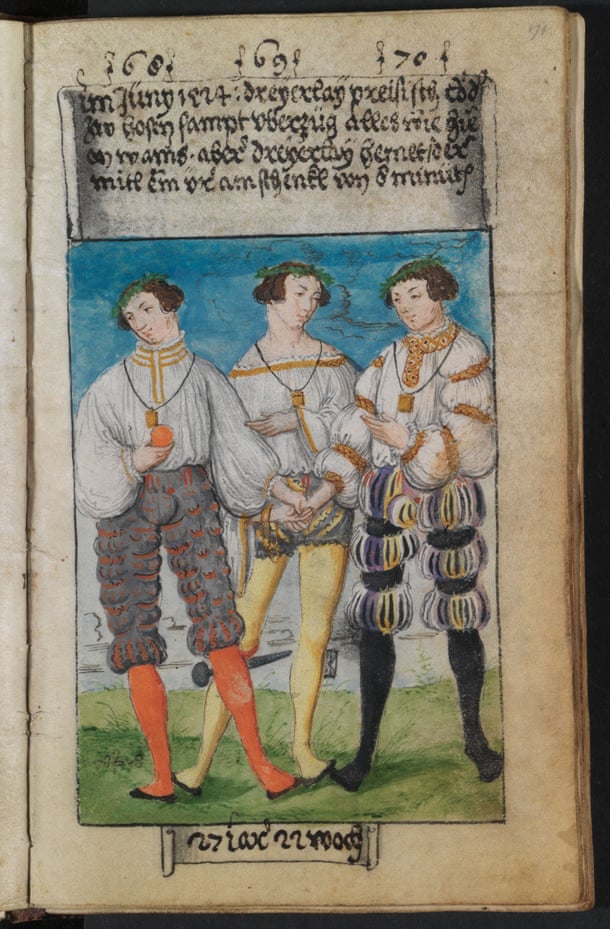 68 69 70
im Juny 1524: dreyerlay preisisch
zwo hosen sampt vberzüg alles wie hie
on wams. aber dreyerlay hemet / der
mitl ein vr am schenkl von 8 minuth
27 iar 22 woch